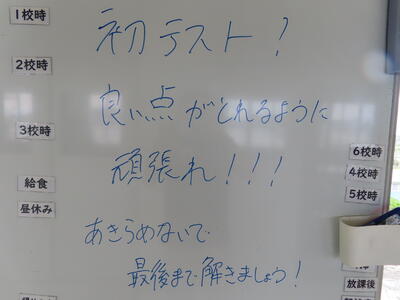 1校時
初テスト！
2校時
良い点がとれるように
3校時
頑張れ！！！
6校時
4校時
給食
5校時
昼休み
あきらめないで
最後まで解きましょう！
放課後